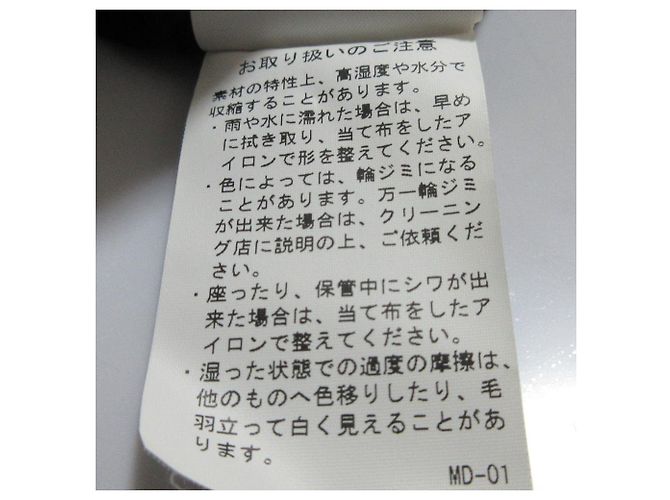 お取り扱いのご注意
素材の特性上、高湿度や水分で
収縮することがあります。
・雨や水に濡れた場合は、早め
に拭き取り、当て布をしたア
イロンで形を整えてください。
・色によっては、輪ジミになる
ことがあります。万一輪ジミ
が出来た場合は、クリーニン
グ店に説明の上、ご依頼くだ
さい。
・座ったり、保管中にシワが出
来た場合は、当て布をしたア
イロンで整えてください。
・湿った状態での過度の摩擦は、
他のものへ色移りしたり、毛
羽立って白く見えることがあ
ります。
MD-01